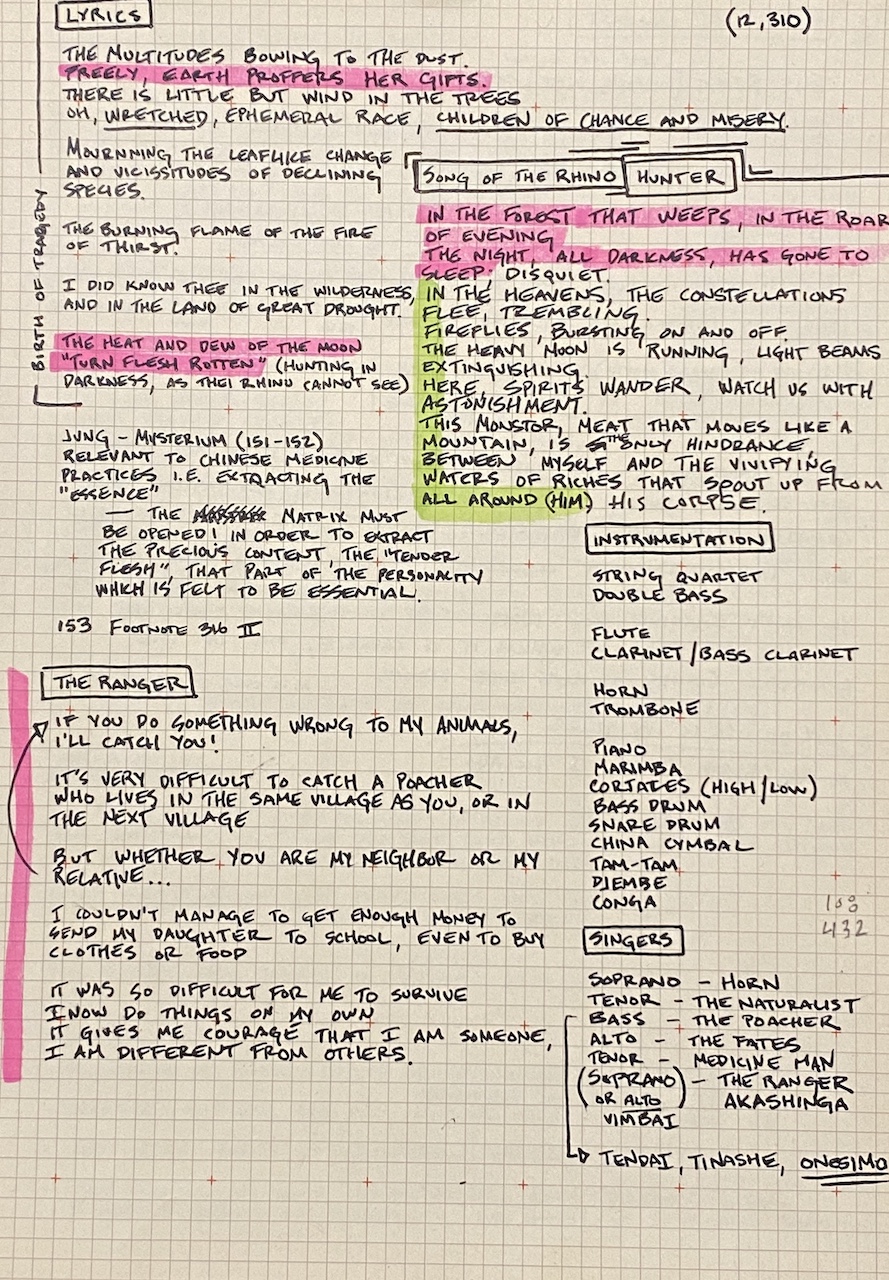 LYRICS
(12,310)
THE MULTITUDES BOWING TO THE DUST.
FREELY, EARTH PROFFERS HER GIFTS.
THERE IS LITTLE BUT WIND IN THE TREES
OH, WRETCHED, EPHEMERAL RACE, CHILDREN OF CHANCE AND MISERY.
MOURNMING THE LEAFLIKE CHANGE
AND VICISSITUDES OF DECLINING
SPECIES.
THE BURNING FLAME OF THE FIRE
OF THIRST.
I DID KNOW THEE IN THE WILDERNESS,
AND IN THE LAND OF GREAT DROUGHT.
THE HEAT AND DEW OF THE MOON
"TURN FLESH ROTTEN" (HUNTING IN
DARKNESS, AS THEI RHINO CANNOT SEE)
BIRTH OF TRAGEDY
JUNG - MYSTERIUM (151-152)
RELEVANT TO CHINESE MEDICINE
PRACTICES I.E. EXTRACTING THE
"ESSENCE"
— THE MATRIX MUST
BE OPENED! IN ORDER TO EXTRACT
THE PRECIOUS CONTENT, THE "TENDER
FLESH", THAT PART OF THE PERSONALITY
WHICH IS FELT TO BE ESSENTIAL.
153 FOOTNOTE 316 II
THE RANGER
IF YOU DO SOMETHING WRONG TO MY ANIMALS,
I'LL CATCH YOU!
IT'S VERY DIFFICULT TO CATCH A POACHER
WHO LIVES IN THE SAME VILLAGE AS YOU, OR IN
THE NEXT VILLAGE
BUT WHETHER YOU ARE MY NEIGHBOR OR MY
RELATIVE...
I COULDN'T MANAGE TO GET ENOUGH MONEY TO
SEND MY DAUGHTER TO SCHOOL, EVEN TO BUY
CLOTHES OR FOOD
IT WAS SO DIFFICULT FOR ME TO SURVIVE
I NOW DO THINGS ON MY OWN
IT GIVES ME COURAGE THAT I AM SOMEONE,
I AM DIFFERENT FROM OTHERS.
SONG OF THE RHINO HUNTER
IN THE FOREST THAT WEEPS, IN THE ROAR
OF EVENING
THE NIGHT, ALL DARKNESS, HAS GONE TO
SLEEP; DISQUIET.
IN THE HEAVENS, THE CONSTELLATIONS
FLEE, TREMBLING.
FIREFLIES, BURSTING ON AND OFF.
THE HEAVY MOON IS RUNNING, LIGHT BEAMS
EXTINGUISHING.
HERE, SPIRITS WANDER, WATCH US WITH
ASTONISHMENT.
THIS MONSTOR, MEAT THAT MOVES LIKE A
MOUNTAIN, IS THE ONLY HINDRANCE,
BETWEEN MYSELF AND THE VIVIFYING
WATERS OF RICHES THAT SPOUT UP FROM
ALL AROUND (HIM) HIS CORPSE.
INSTRUMENTATION
STRING QUARTET
DOUBLE BASS
FLUTE
CLARINET/BASS CLARINET
HORN
TROMBONE
PIANO
MARIMBA
CORTALES (HIGH/LOW)
BASS DRUM
SNARE DRUM
CHINA CYMBAL
TAM-TAM
DJEMBE
CONGA
432
SINGERS
SOPRANO - HORN
TENOR - THE NATURALIST
BASS - THE POACHER
ALTO - THE FATES
TENOR - MEDICINE MAN
(SOPRANO) - THE RANGER
OR ALTO AKASHINGA
VIMBAI
TENDAI, TINASHE, ONESIMO